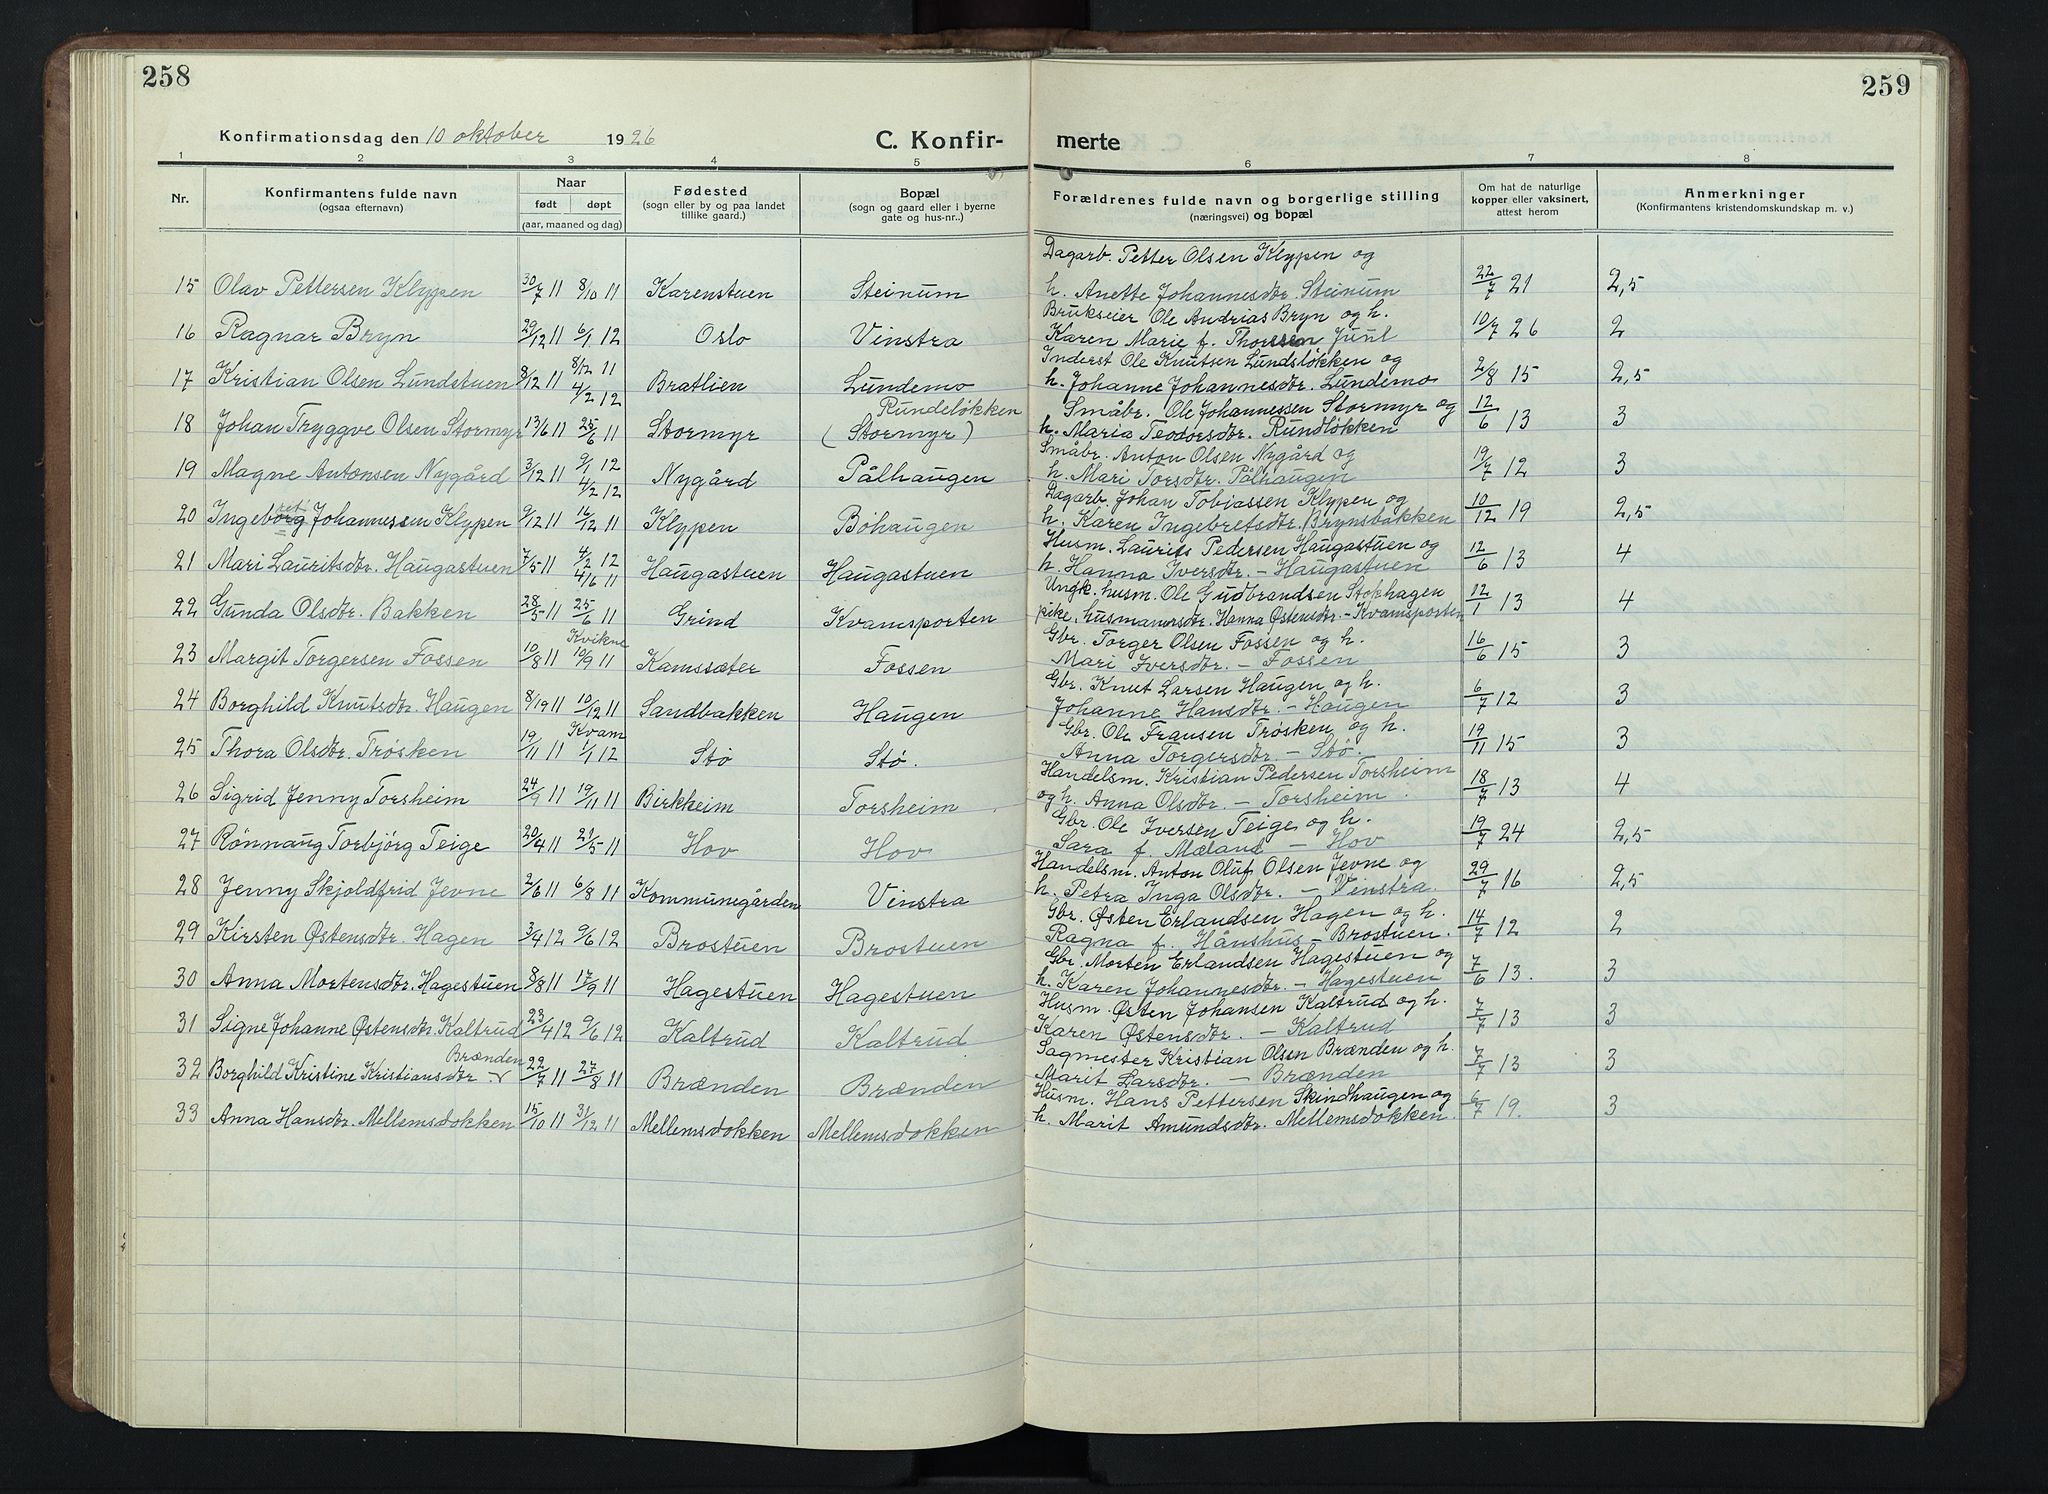 258
259
Konfirmationsdag den 10 oktober 1926
C. Konfir-
merte
1 2 3 4 5 6 7 8
Nr. Konfirmantens fulde navn (ogsaa efternavn) Naar født døpt (aar, maaned og dag) Fødested (sogn eller by og paa landet tillike gaard.) Bopæl (sogn og gaard eller i byerne gate og hus-nr.) Forældrenes fulde navn og borgerlige stilling (næringsvei) og bopæl Om hat de naturlige kopper eller vaksinert, attest herom Anmerkninger (Konfirmantens kristendomskundskap m. v.)
Dagarb. Petter Olsen Klypen og
15 Olav Pettersen Klypen 30/7 11 8/10 11 Karenstuen Steinum h. Anette Johannesdtr. Steinum 22/7 21 2,5
Brukseier Ole Andrias Bryn og h.
16 Ragnar Bryn 29/12 11 6/1 12 Oslo Vinstra Karen Marie f. Thoresen Juul 10/7 26 2
8/12 11 Inderst Ole Knutsen Lundsløkken og
17 Kristian Olsen Lundstuen 8/12 11 4/2 12 Bratlien Lundemo h. Johanne Johannesdtr. Lundemo 2/8 15 2,5
Rundeløkken Småbr. Ole Johannessen Stormyr og
18 Johan Tryggve Olsen Stormyr 13/6 11 25/6 11 Stormyr (Stormyr) h. Maria Teodorsdtr. Rundløkken 12/6 13 3
9/1 12 Småbr. Anton Olsen Nygård og
19 Magne Antonsen Nygård 3/12 11 4/2 12 Nygård Pålhaugen h. Mari Torsdtr. Pålhaugen 19/7 12 3
ret Dagarb. Johan Tobiassen Klypen og
20 Ingeborg Johannessen Klypen 9/12 11 12/12 11 Klypen Bøhaugen h. Karen Ingebretsdtr. Brynsbakken 10/12 19 2,5
4/2 12 Husm. Laurits Pedersen Haugastuen og
21 Mari Lauritsdtr. Haugastuen 7/5 11 4/6 11 Haugastuen Haugastuen h. Hanna Iversdtr. - Haugastuen 12/6 13 4
Ungk. husm. Ole Gudbrandsen Stokhagen
22 Gunda Olsdtr. Bakken 28/5 11 25/6 11 Grind Kvamsporten pike, husmannsdtr. Hanna Østensdtr. - Kvamsporten 12/1 13 4
Kvikne Gbr. Torger Olsen Fossen og h.
23 Margit Torgersen Fossen 10/8 11 10/9 11 Kamssæter Fossen Mari Iversdtr. - Fossen 16/6 15 3
Gbr. Knut Larsen Haugen og h.
24 Borghild Knutsdtr. Haugen 8/19 11 10/12 11 Sandbakken Haugen Johanne Hansdtr. - Haugen 6/7 12 3
Kvam Gbr. Ole Fransen Trøsken og h.
25 Thora Olsdtr. Trøsken 19/11 11 1/1 12 Stø Stø. Anna Torgersdtr. - Stø. 19/11 15 3
Handelsm. Kristian Pedersen Torsheim
26 Sigrid Jenny Torsheim 24/9 11 19/11 11 Birkheim Torsheim og h. Anna Olsdtr. - Torsheim. 18/7 13 4
Gbr. Ole Iversen Teige og h.
27 Rønnaug Torbjørg Teige 20/4 11 21/5 11 Hov Hov Sara f. Mæland - Hov 19/7 24 2,5
Handelsm. Anton Oluf Olsen Jevne og
28 Jenny Skjoldfrid Jevne 2/6 11 6/8 11 Kommunegården Vinstra h. Petra Inga Olsdtr. - Vinstra. 29/7 16 2,5
Gbr. Østen Erlandsen Hagen og h.
29 Kirsten Østensdtr. Hagen 3/4 12 9/6 12 Brostuen Brostuen Ragna f. Hånshus - Brostuen. 14/7 12 2
Gbr. Morten Erlandsen Hagestuen og
30 Anna Mortensdtr. Hagestuen 8/8 11 17/9 11 Hagestuen Hagestuen h. Karen Johannesdtr. - Hagestuen 7/6 13. 3
Husm. Østen Johansen Kaltrud og h.
31 Signe Johanne Østensdtr. Kaltrud 23/4 12 9/6 12 Kaltrud Kaltrud Karen Østensdtr. - Kaltrud 7/7 13 3
Brænden Sagmester Kristian Olsen Brænden og h.
32 Borghild Kristine Kristiansdtr 22/7 11 27/8 11 Brænden Brænden Marit Larsdtr. - Brænden 7/7 13 3
Husm. Hans Pettersen Skindhaugen og
33 Anna Hansdtr. Mellemsdokken 15/10 11 31/12 11 Mellemsdokken Mellemsdokken h. Marit Amundsdtr. Mellemsdokken. 6/7 19. 3